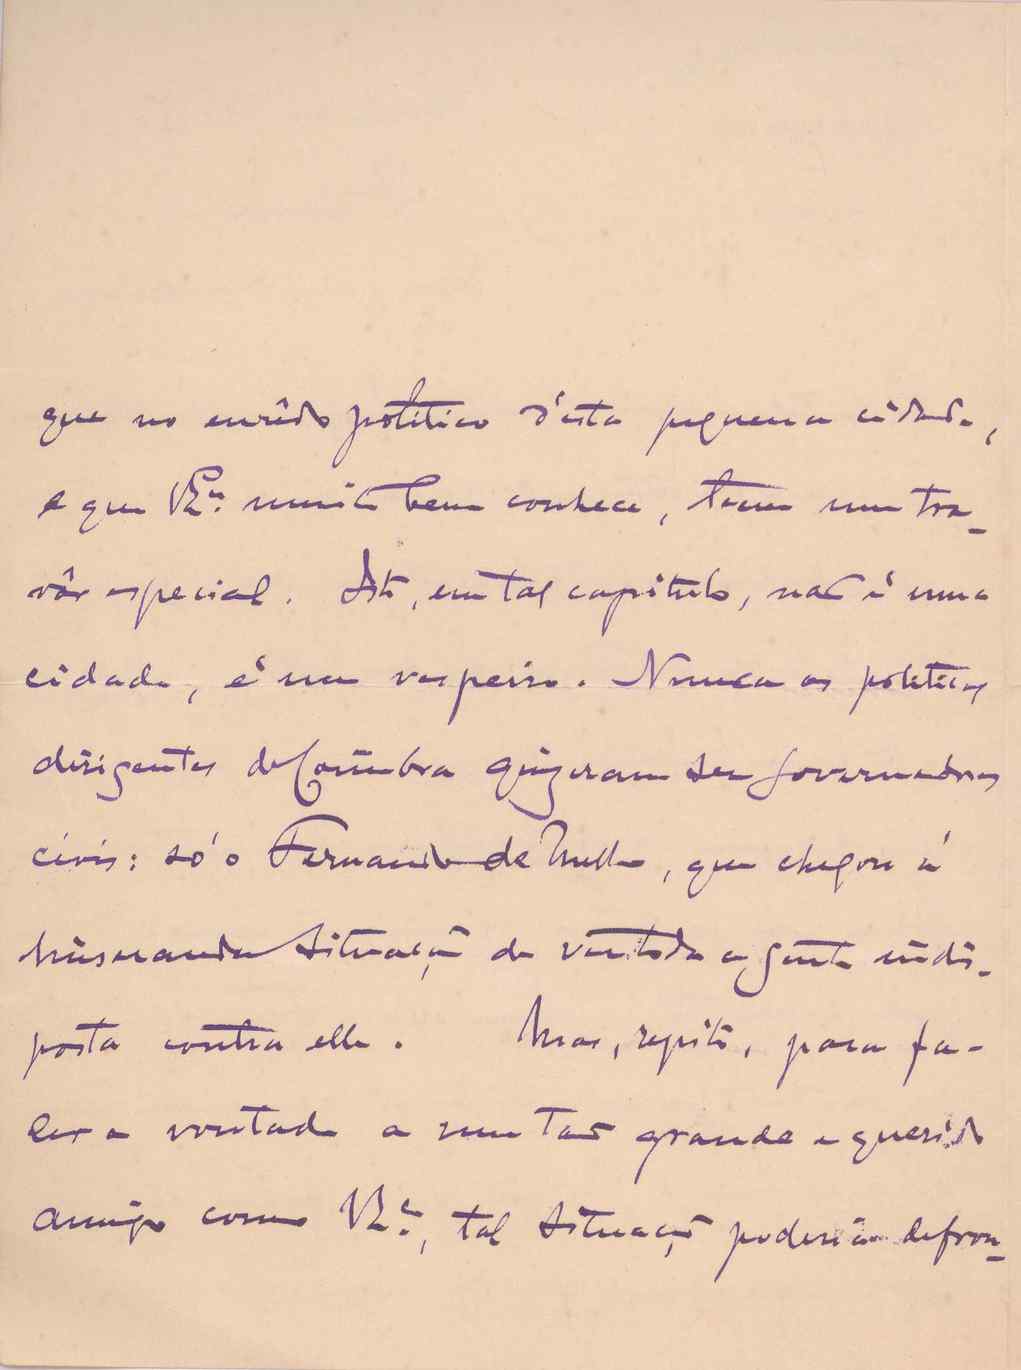 que no enrêdo politico d'esta pequena cidade,
e que V. Exª. muito bem conhece, teem um tra-
vôr especial. Isto, em tal capitulo, não é uma
cidade, é um vespeiro. Nunca os politicos
dirigentes de Coimbra quizeram ser governadores
civis: só o Fernando de Mello, que chegou á
miseranda situação de ver toda a gente indis-
posta contra elle. Mas, repito, para fa-
zer a vontade a um tão grande e querido
amigo como V. Exª., tal situação poderia defron-